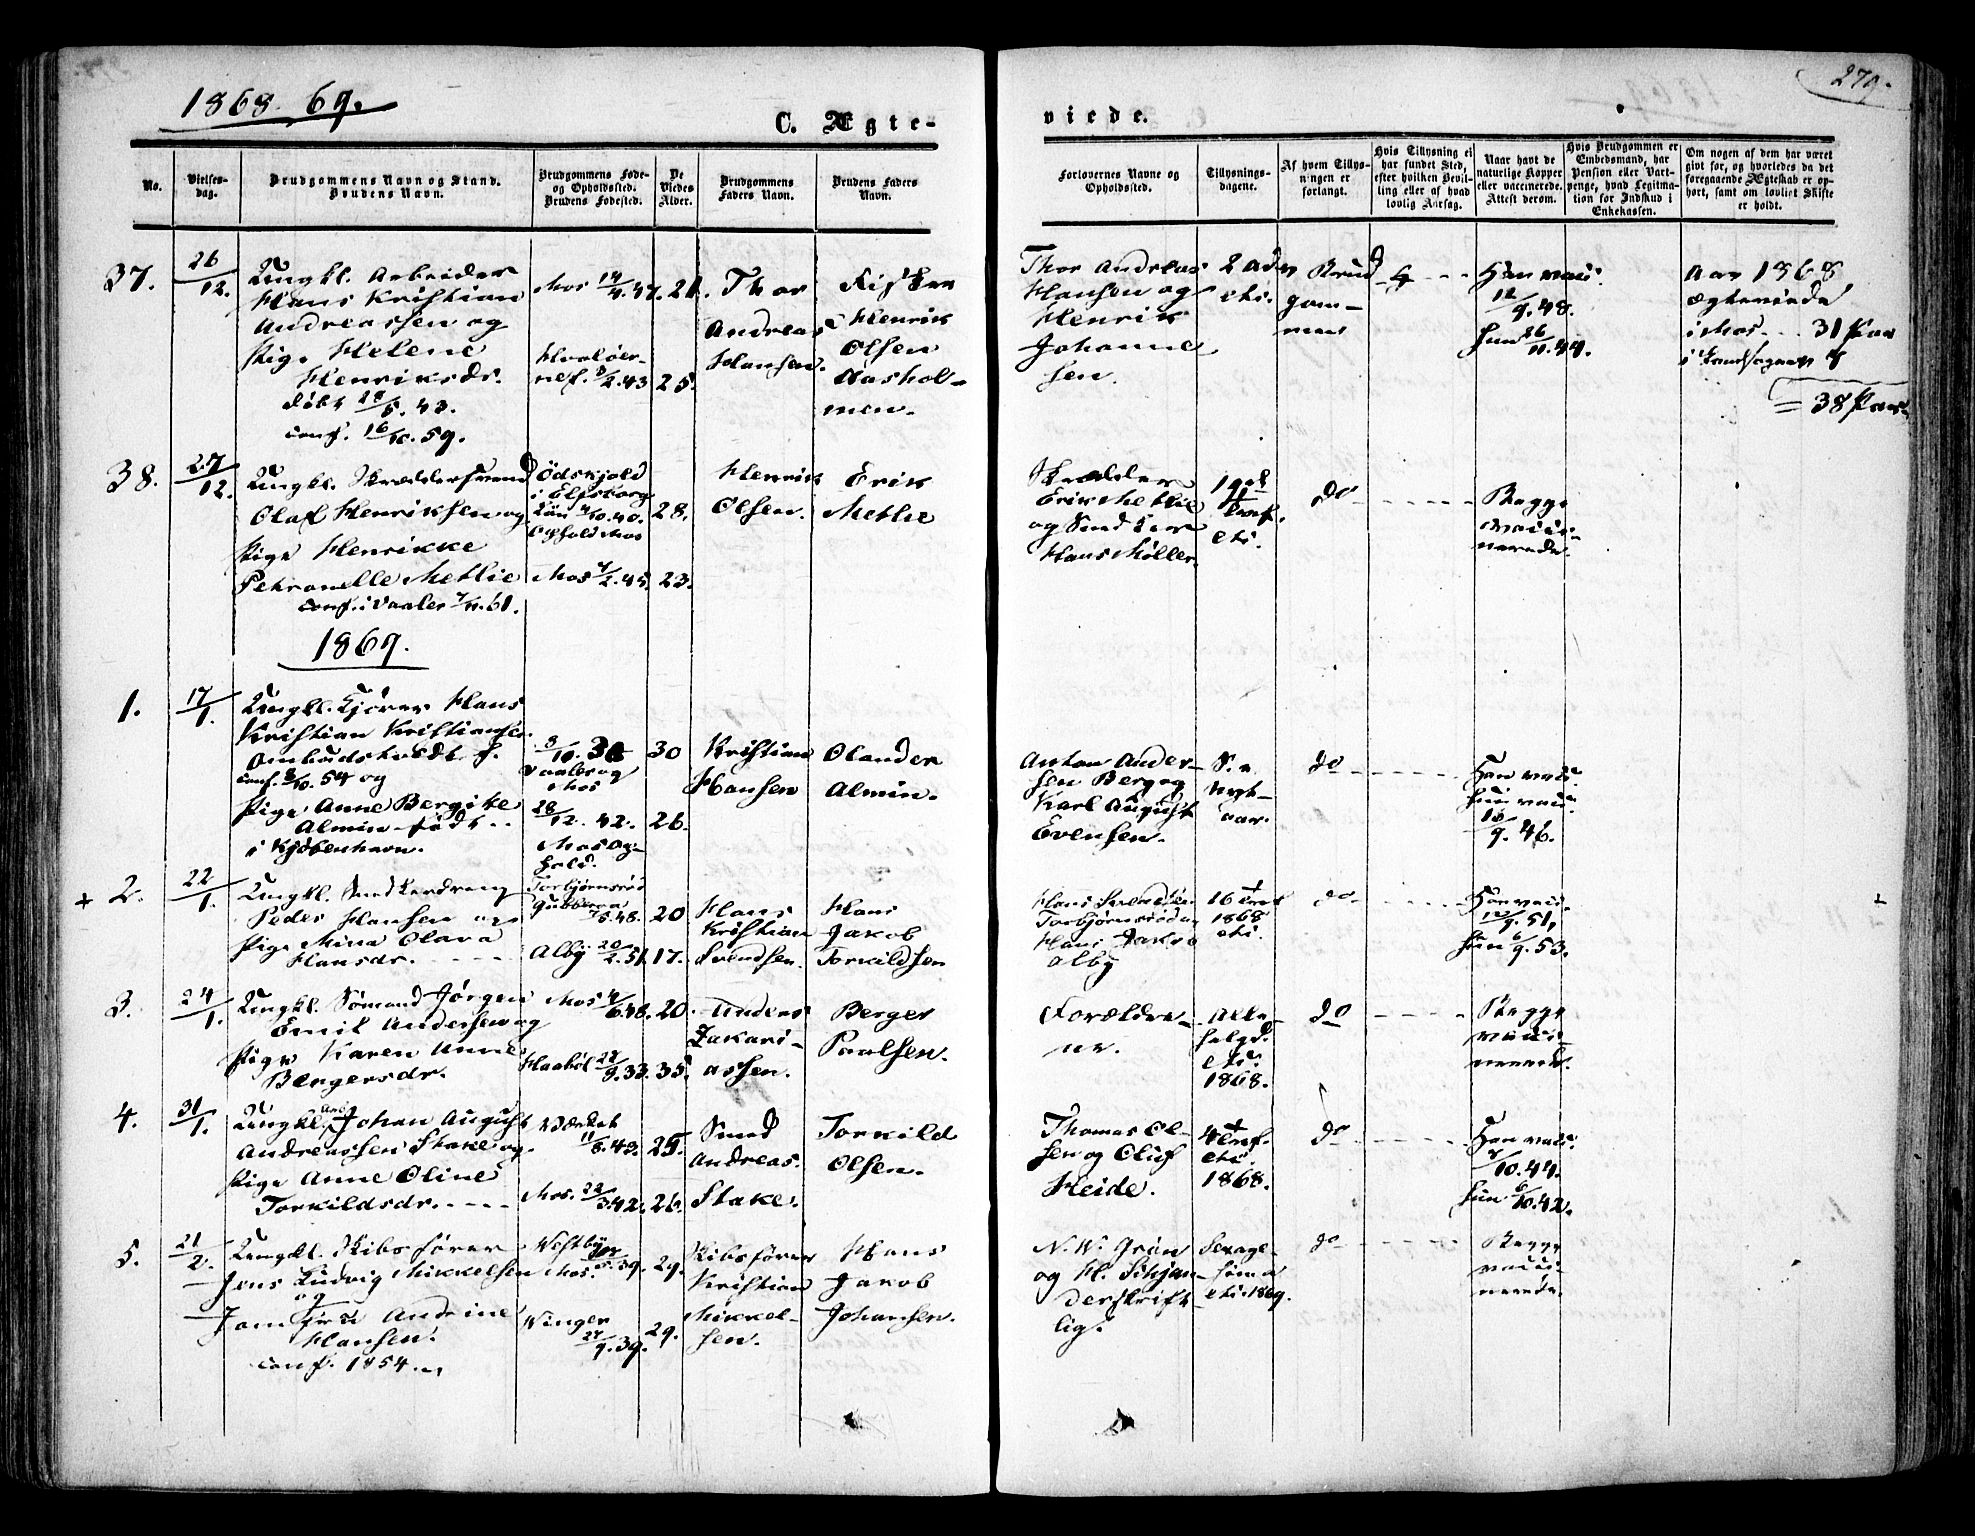 1868-69.
279.
C. Ægte-
viede.
No.
Vielses-
dag.
Brudgommens Navn og Stand.
Brudens Navn.
Brudgommens Føde-
og Opholdssted.
Brudens Fødested.
De
Viedes
Alder.
Brudgommens
Faders Navn.
Brudens Faders
Navn.
Forlovernes Navne og
Opholdssted.
Tillysnings-
dagene.
Af hvem Tillys-
ningen er
forlangt.
Hvis Tillysning ei
har fundet Sted,
efter hvilken Bevil-
ling eller af hvad
lovlig Aarsag.
Naar havt de
naturlige Kopper
eller vaccinerede.
Attest derom.
Hvis Brudgommen er
Embedsmand, har
Pension eller Vart-
penge, hvad Legitima-
tion for Indskud i
Enkekassen.
Om nogen af dem har været
gift før, og hvorledes da det
foregaaende Ægteskab er op-
hørt, samt om lovligt Skifte
er holdt.
37.
26/12.
Ungkl. Arbeider
Hans Kristian
Andreassen og
Pige Helene
Henriksdr.
døbt 28/5. 43.
conf. 16/10. 59.
Mos 14/4. 47.
Hvaløer-
ne 8/2. 43
21.
25.
Thor
Andreas
Hansen.
Fisker
Henrik
Olsen
Aashol-
men.
Thor Andreas
Hansen og
Henrik
Johanne
sen.
2 Adv
Brud
gom-
men
Han vacc.
12/9. 48.
hun 26/11. 44.
Aar 1868
ægteviede
i Mos - - 31 Par
i Landsognet 7
= 38 Par
38.
27/12.
Ungkl. Skræddersvend
Olaf Henriksen og
Pige Henrikke
Petronelle Methie
conf. i Vaaler 7/11. 61.
Ödskjold
i Elfsborg
Län 4/10. 40.
Ophold Mos
Mos 4/2. 45.
28.
23.
Henrik
Olsen.
Erik
Methie
Skrædder
Erik Methie
og Snedker
Hans Möller.
do
Begge
vacci-
nerede.
1869.
1.
17/1.
Ungkl. Kjører Hans
Kristian Kristiansen
conf. 8/10. 54 og
Pige Anne Bergite
Almin født
i Kjøbenhavn.
Vaaler og
Mos
28/12. 42.
Mos Op-
hold.
30
26.
Kristian
Hansen
Olander
Almin.
Anton Ander-
sen Berg og
Karl August
Evensen.
S. e
Nyt-
aar.
do
Han vacc.
hun vacc.
13/9. 46.
2.
22/1.
Ungkl. Snedkerdreng
Peder Hansen og
Pige Mina Olava
Hansdr.
Torbjørnsrød
Alby 20/2. 51.
20
17.
Hans
Kristian
Svendsen.
Hans
Jakob
Torkildsen
Hans Svendsen
Torbjørnsrød og
Hans Jakob
Alby
16 Tref
1868
eti.
do
Han vacc.
12/9. 51,
hun 6/9. 53.
3.
24/1.
Ungkl. Sømand Jørgen
Emil Andersen og
Pige Karen Anne
Bergersdr.
Mos 4/6. 48.
Haabøl 22/9. 33.
20.
35.
Anders
Zakari-
assen.
Berger
Paalsen.
Foræl­dre-
ne.
Alle-
helgd.
eti.
1868.
do
Begge
vacci-
nerede.
4.
31/1.
Ungkl. Arb. Johan August
Andreassen Stake og
Pige Anne Oline
Torkildsdr.
Værket
11/8. 43.
Mos. 22/3. 42.
25.
26.
Smed
Andreas
Stake.
Torkild
Olsen.
Thomas Ol-
sen og Oluf
Heide.
4 Tref.
eti.
1868.
do
Han vacc.
7/10. 44.
hun 6/10. 42.
5.
21/2.
Ungkl. Skibsfører
Jens Ludvig Mikkelsen
og
Jomfru Andrine
Hansen.
conf. 1854.
Vestby
Mos. 39.
Vinger
27/9. 39.
29.
29.
Skibsfører
Kristian
Mikkel-
sen.
Hans
Jakob
Johansen.
N. W. Grøn
og H. Schjan
derskrift-
lig.
Sexage-
sima
eti. 1869.
do
Begge
vacci-
nerede.